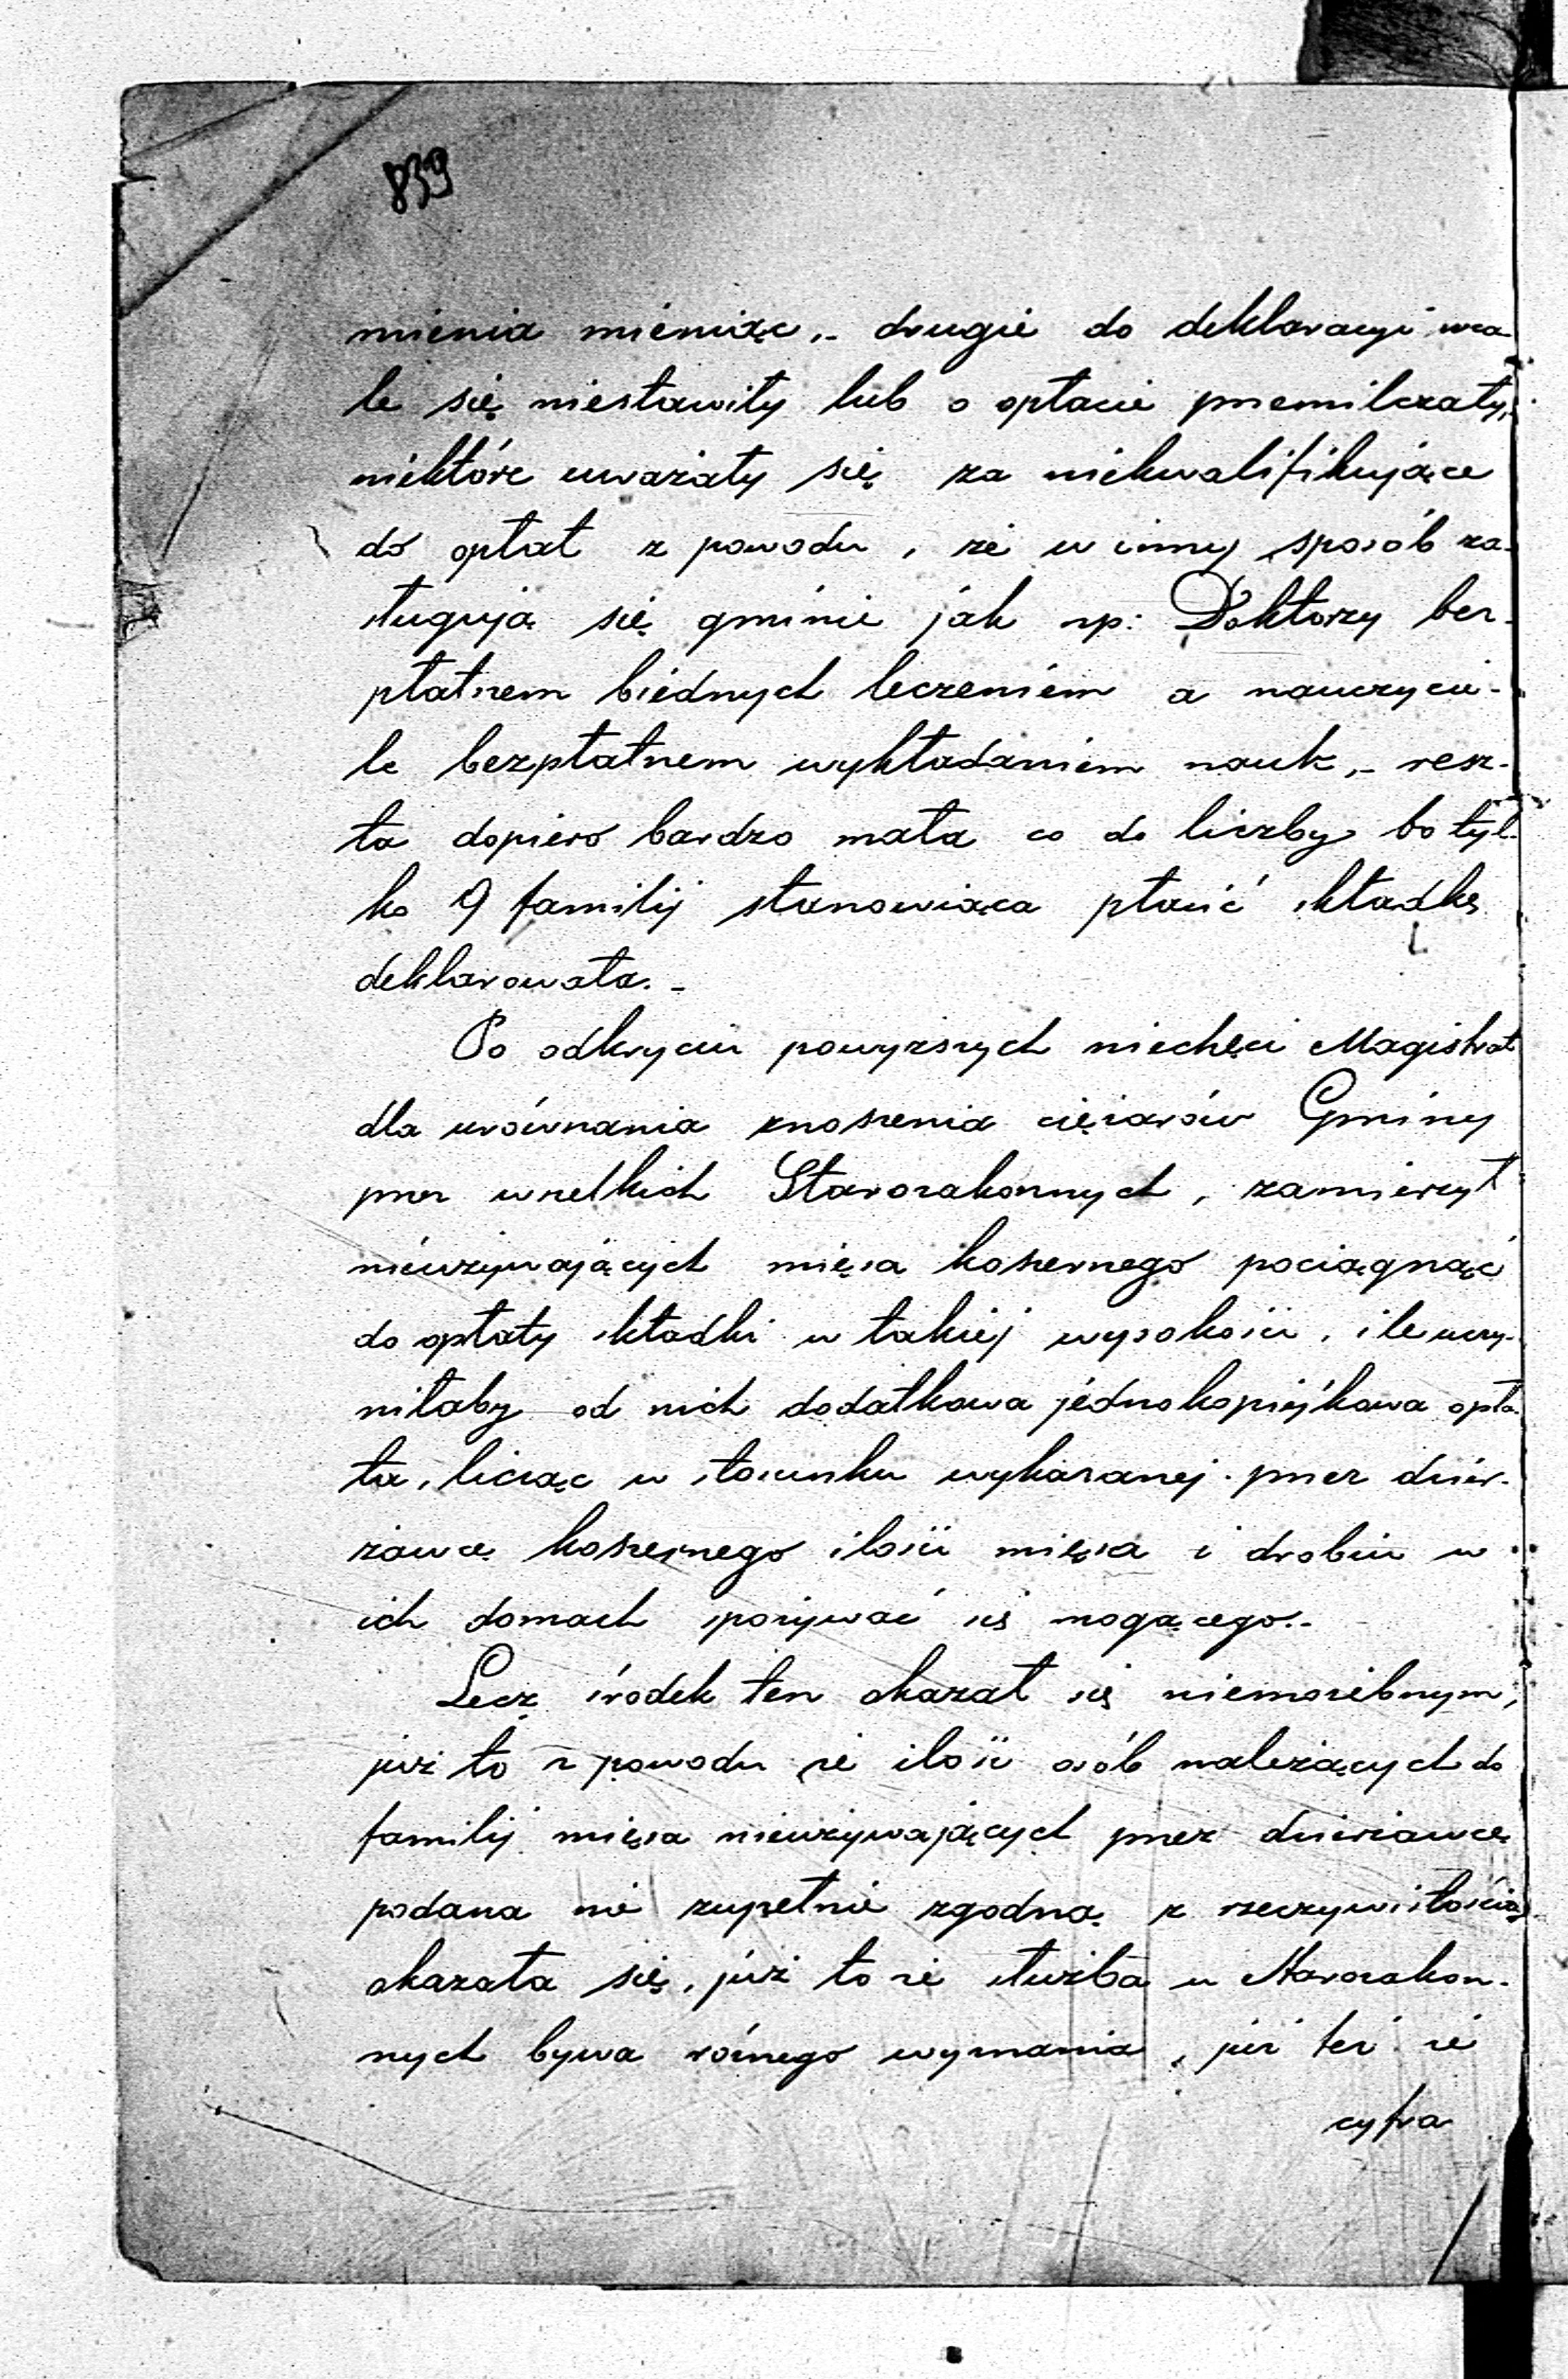 839
mienia mieniąc,- drugie do deklaracyi wca-
le się niestawiły lub o opłacie przemilczały,
niektóre uważały się za niekwalifikujące
do opłat z powodu, że w inny sposób za-
sługują się gminie jak np: Doktorzy bez-
płatnem biednych leczeniem a nauczycie-
le bezpłatnem wykładaniem nauk,- resz-
ta dopiero bardzo mała co do liczby bo tyl-
ko 9 familij stanowiąca płacić składkę
deklarowała.-
Po odkryciu powyższych niechęci Magistrat
dla zrównania znoszenia ciężarów Gminy
przez wszelkich Starozakonnych, zamierzył
nieużywających mięsa koszernego pociągnąć
do opłaty składki w takiej wysokości, ile uczy-
niłaby od nich dodatkowa jednokopiejkowa opła-
ta, licząc w stosunku wykazanej przez dzier-
żawcę koszernego ilości mięsa i drobiu w
ich domach spożywać się mogącego.-
Lecz środek ten okazał się niemożebnym,
już to z powodu że ilość osób należących do
familij mięsa nieużywających przez dzierżawcę
podana nie zupełnie zgodną z rzeczywistością
okazała się, już to że służba u Starozakon-
nych bywa różnego wyznania, już też że
cyfra